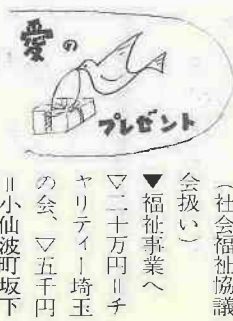 愛の
プレゼント
（社会福祉協議
会扱い）
▼福祉事業へ
▽二十万円＝チ
ャリティー埼玉
の会、▽五千円
＝小仙波町坂下